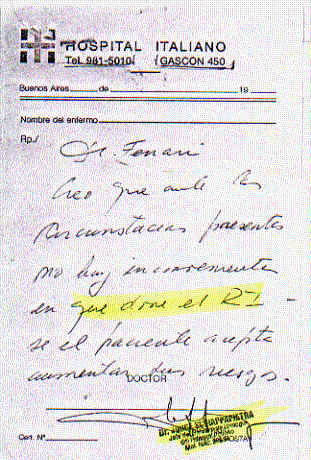 HOSPITAL ITALIANO
Tel. 981-5010 GASCON 450
Buenos Aires de 19
Nombre del enfermo
Rp./
Dr. Ferrari
Creo que ante las
circunstacias presentes
no hay inconveniente
en que done el RI -
se el paciente acepta
aumentar sus riesgos.
DOCTOR
Cert. N°